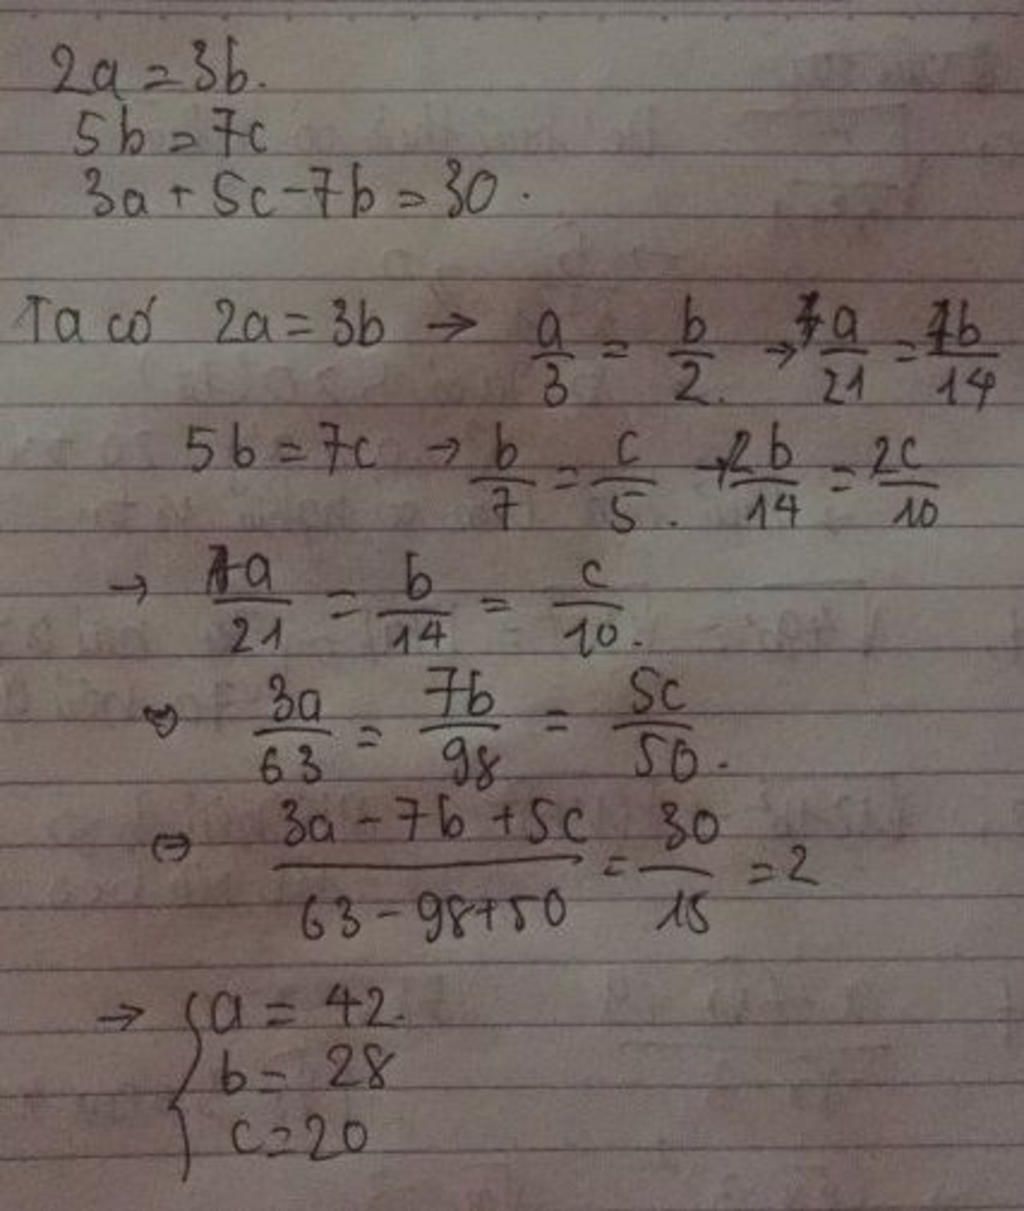 2a = 3b.
5b = 7c
3a + 5c - 7b = 30.
Ta có 2a = 3b → a/3 = b/2. → a/21 = b/14
5b = 7c → b/7 = c/5. → 2b/14 = 2c/10
→ a/21 = b/14 = c/10.
⇔ 3a/63 = 7b/98 = 5c/50.
⇔ (3a - 7b + 5c)/(63 - 98 + 50) = 30/15 = 2
→ { a = 42.
b = 28
c = 20